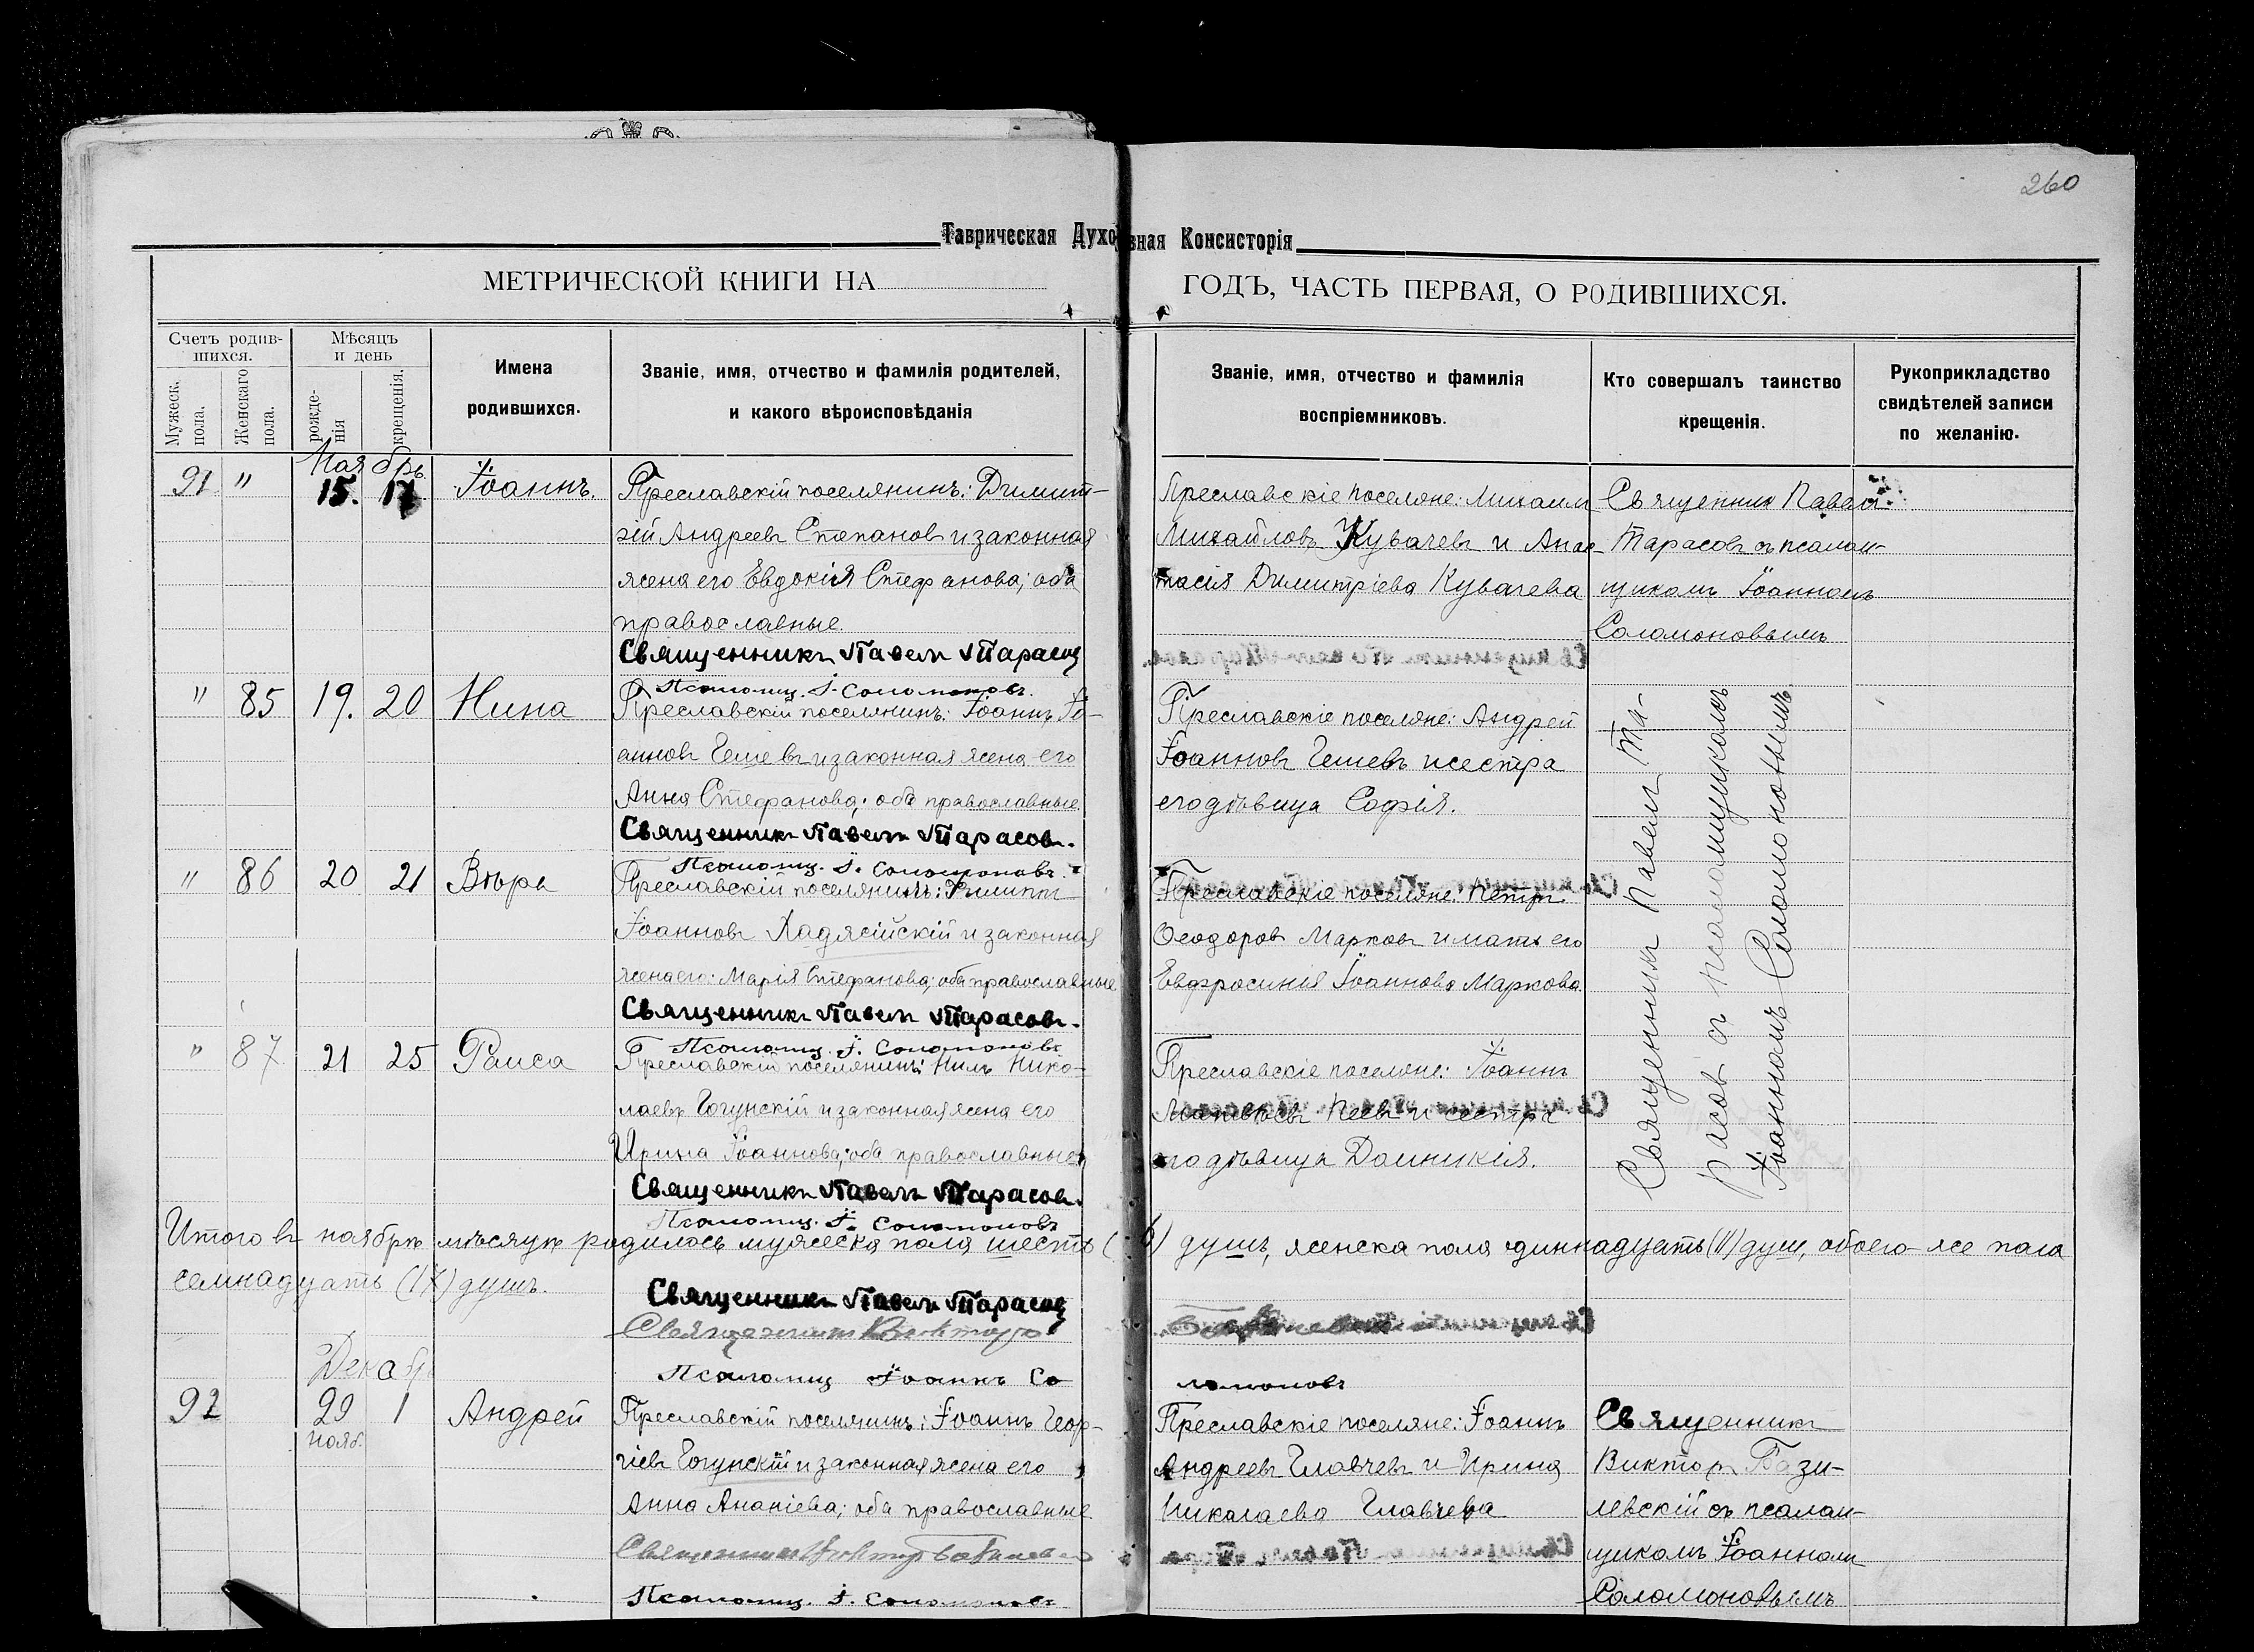 260
Таврическая Духовная Консисторія
МЕТРИЧЕСКОЙ КНИГИ НА ГОДЪ, ЧАСТЬ ПЕРВАЯ, О РОДИВШИХСЯ.
Счетъ родив-
шихся.
Мужеск.
пола.
Женскаго
пола.
Мѣсяцъ
и день
рожде-
нія
крещенія.
Имена
родившихся.
Званіе, имя, отчество и фамилія родителей,
и какого вѣроисповѣданія
Званіе, имя, отчество и фамилія
воспріемниковъ.
Кто совершалъ таинство
крещенія.
Рукоприкладство
свидѣтелей записи
по желанію.
Ноябрь
91 " 15. 17 Іоаннъ.
Преславскій поселянинъ: Димит-
рій Андреевъ Степановъ и законная
жена его Евдокія Стефанова; оба
православные.
Священникъ Павелъ Тарасов
Псаломщ. І. Соломоновъ.
Преславскіе поселяне: Михаил
Михайловъ Кувачевъ и Анас-
тасія Димитріева Кувачева
Священник Павел
Тарасовъ съ псалом-
щикомъ Іоанномъ
Соломоновымъ
" 85 19. 20 Нина
Преславскій поселянинъ: Іоаннъ Іо-
анновъ Гешевъ и законная жена его
Анна Стефанова; оба православные
Священникъ Павелъ Тарасовъ.
Псаломщ. І. Соломоновъ.
Преславскіе поселяне: Андрей
Іоанновъ Гешевъ и сестра
его дѣвица Софія.
Священникъ Павелъ Та-
расовъ съ псаломщикомъ
Іоанномъ Соломоновымъ
" 86 20 21 Вѣра
Преславскій поселянинъ: Филиппъ
Іоанновъ Хаджійскій и законная
жена его: Марія Стефанова; оба православные
Священникъ Павелъ Тарасовъ.
Псаломщ. І. Соломоновъ
Преславскіе поселяне: Петръ
Ѳеодоровъ Марковъ и мать его
Евфросинія Іоаннова Маркова
" 87 21 25 Раиса
Преславскій поселянинъ: Нилъ Нико-
лаевъ Гогунскій и законная жена его
Ирина Іоаннова; оба православные
Священникъ Павелъ Тарасовъ.
Псаломщ. І. Соломоновъ
Преславскіе поселяне: Іоаннъ
Матвѣевъ Пеевъ и сестра
его дѣвица Домникія.
Итого въ ноябрѣ мѣсяцѣ родилось мужеска пола шесть (6) душъ, женска пола одиннадцать (11) душ, обоего-же пола
семнадцать (17) душъ.
Священникъ Павелъ Тарасов
Священникъ Викторъ Базилевскій
Псаломщ Іоаннъ Соломоновъ
Декаб
92 29 1 Андрей
нояб.
Преславскій поселянинъ: Іоаннъ Геор-
гіевъ Гогунскій и законная жена его
Анна Ананіева; оба православные
Священникъ Викторъ Базилевскій
Псаломщ. І. Соломоновъ
Преславскіе поселяне: Іоаннъ
Андреевъ Главчевъ и Ирина
Николаева Главчева
Священникъ
Викторъ Бази-
левскій съ псалом-
щикомъ Іоанномъ
Соломоновымъ